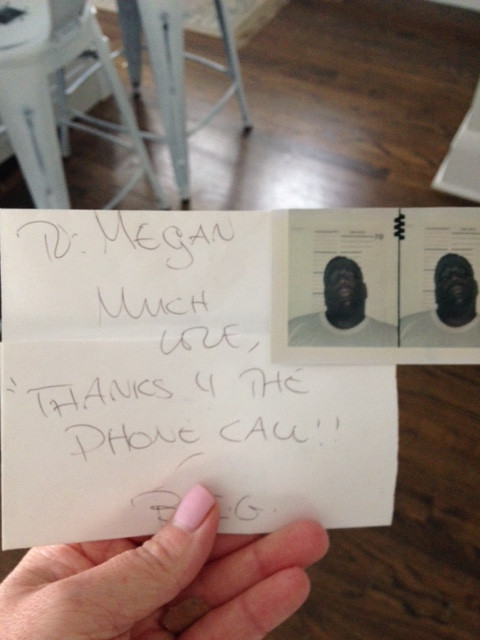 TO: MEGAN
MUCH
LOVE,
THANKS 4 THE
PHONE CALL!!